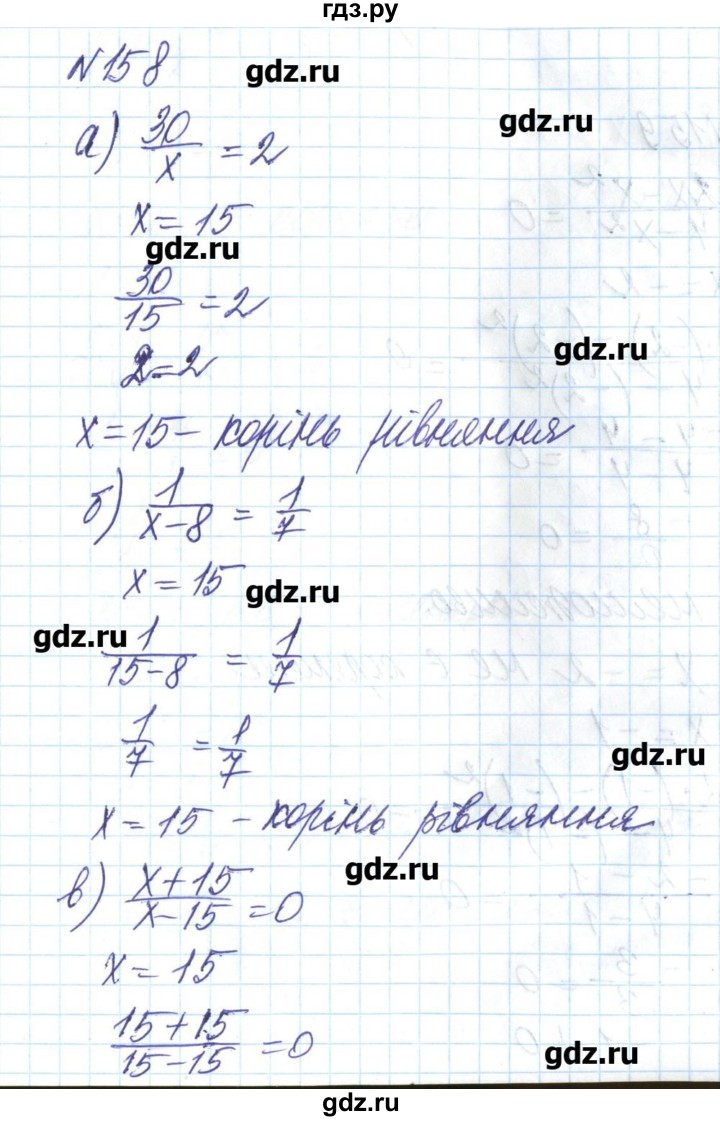 гдз.ру
N158
gdz.ru
gdz.ru
а) 30/x = 2
x = 15
gdz.ru
30/15 = 2
2 = 2
gdz.ru
x = 15 – корінь рівняння
б) 1/(x-8) = 1/7
x = 15
gdz.ru
gdz.ru
1/(15-8) = 1/7
1/7 = 1/7
gdz.ru
x = 15 – корінь рівняння
gdz.ru
в) (x+15)/(x-15) = 0
x = 15
(15+15)/(15-15) = 0
gdz.ru
gdz.ru